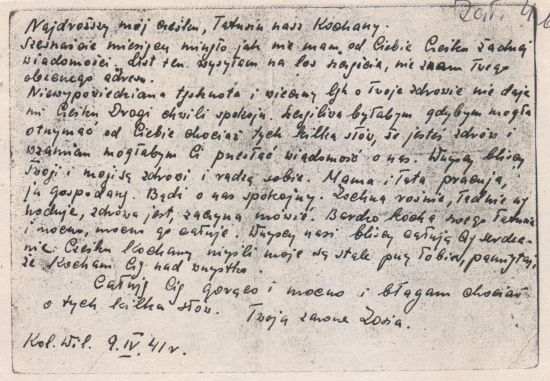 Zał. 4
Najdroższy mój Cieśku, Tatusiu nasz Kochany.
Szesnaście miesięcy minęło jak nie mam od Ciebie Cieśku żadnej
wiadomości. List ten wysyłam na los szczęścia, nie znam Twego
obecnego adresu.
Niewypowiedziana tęsknota i wieczny lęk o Twoje zdrowie nie daje
mi Cieśku Drogi chwili spokoju. Szczęśliwa byłabym gdybym mogła
otrzymać od Ciebie chociaż tych kilka słów, że jesteś zdrów i
wzamian mogłabym Ci przesłać wiadomość o nas. Wszyscy bliscy
Twoi i moi są zdrowi i radzą sobie. Mama i Tata pracują,
ja gospodarzę. Bądź o nas spokojny. Zochna rośnie, ładnie się
hoduje, zdrowa jest, zaczyna mówić. Bardzo kocha swego Tatusia
i mocno, mocno go całuje. Wszyscy nasi bliscy całują Cię serdecz-
nie. Cieśku Kochany myśli moje są stale przy Tobie, pamiętaj,
że Kocham Cię nad wszystko.
Całuję Cię gorąco i mocno i błagam chociaż
o tych kilka słów. Twoja zawsze Zosia.
Kol. Wil. 9.IV.41r.